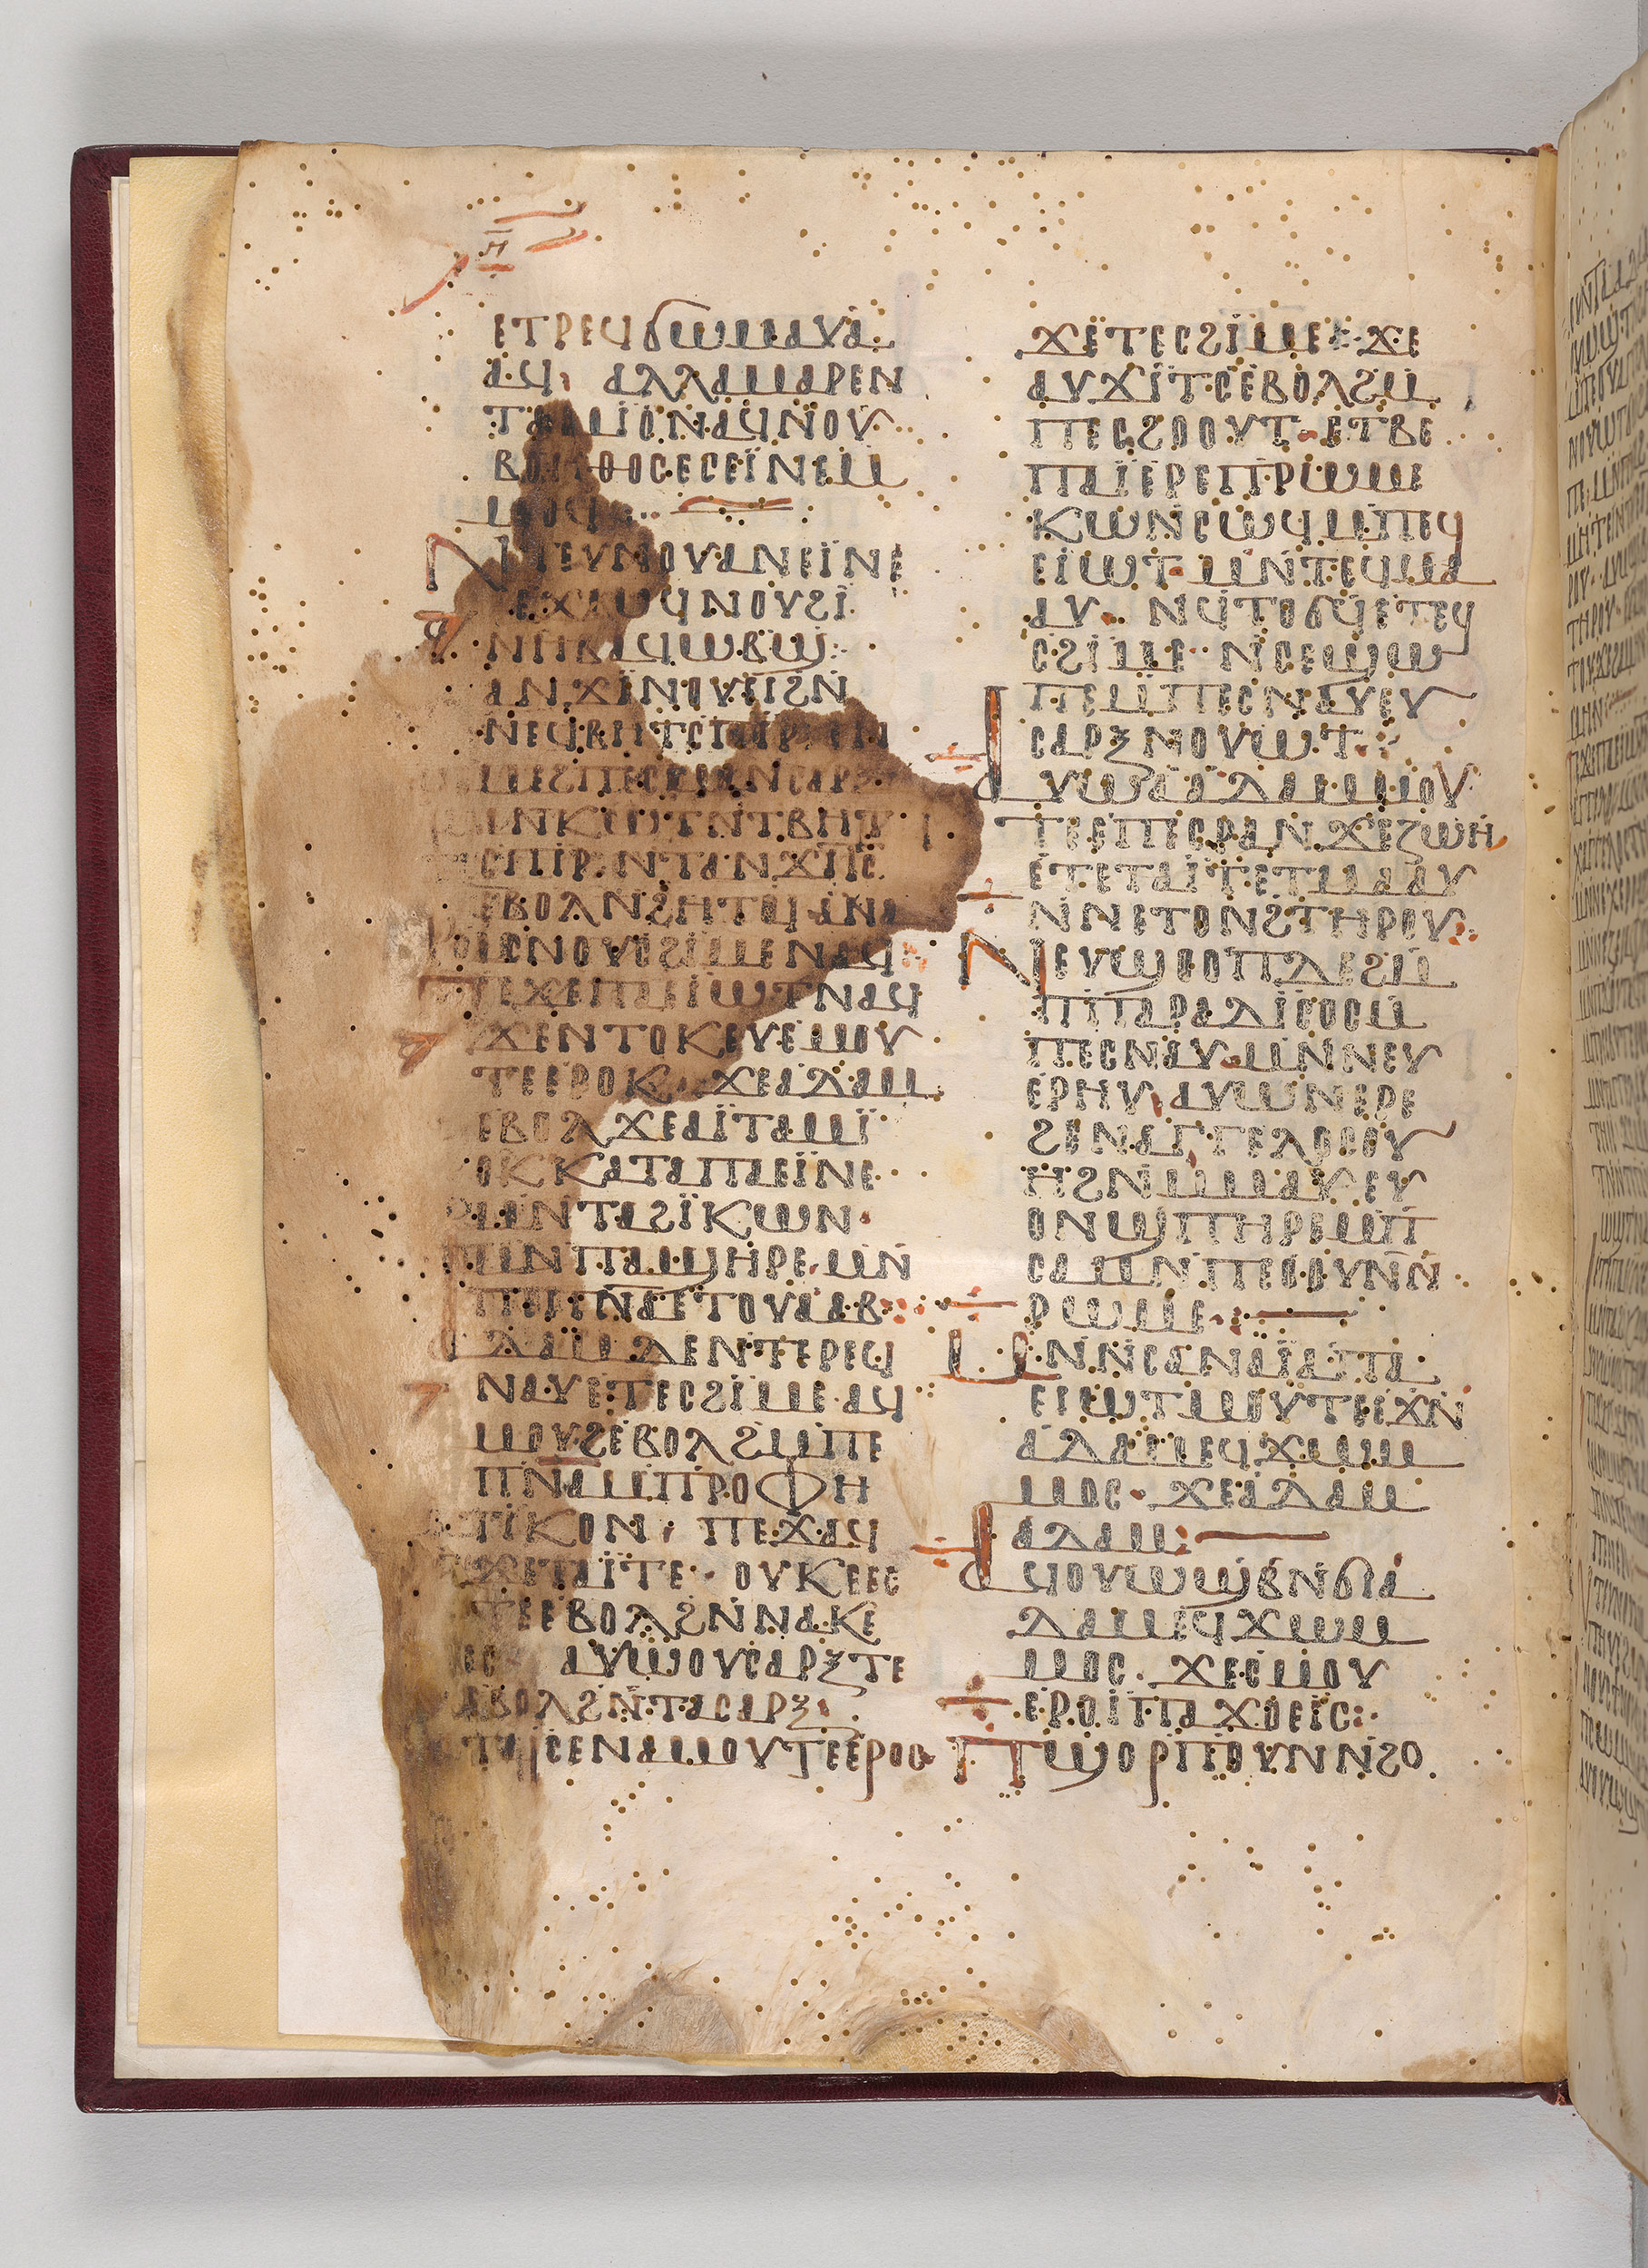 ⲏ
ⲉⲧⲣⲉϥϭⲱⲙⲁⲩⲁ
ⲁϥ ⲁⲗⲗⲁⲙⲁⲣⲉⲛ
ⲧⲁⲙⲓⲟⲛⲁϥⲛⲟⲩ
ⲃⲟⲏⲑⲟⲥⲉⲥⲉⲓⲛⲉⲙ
ⲙⲟϥ
ⲛⲧⲉⲩⲛⲟⲩⲁⲛⲉⲓⲛⲉ
ⲉϫⲱϥⲛⲟⲩϩⲓ
ⲛⲏⲃⲁϥⲱⲃϣ
ⲁⲛϫⲓⲛⲟⲩⲉⲓϩⲛ
ⲛⲉϥⲃⲏⲧⲥⲡⲓⲣ
ⲙⲉϩⲡⲉⲥⲙⲁⲛⲥⲁⲣⲝ
ⲁⲛⲕⲱⲧⲛⲧⲃⲏⲧ
ⲥⲡⲓⲣⲛⲧⲁⲛϫⲓⲧⲥ
ⲉⲃⲟⲗⲛϩⲏⲧϥⲁⲛⲁ
ⲁⲥⲛⲟⲩⲥϩⲓⲙⲉⲛⲁϥ
ⲡⲉϫⲉⲡⲁⲉⲓⲱⲧⲛⲁϥ
ϫⲉⲛⲧⲟⲕⲉⲩⲉⲙⲟⲩ
ⲧⲉⲉⲣⲟⲕ ϫⲉⲁⲇⲁⲙ
ⲉⲃⲟⲗϫⲉⲁⲓⲧⲁⲙⲓ
ⲟⲕⲕⲁⲧⲁⲡⲁⲉⲓⲛⲉ
ⲙⲛⲧⲁϩⲓⲕⲱⲛ
ⲙⲛⲡⲁϣⲏⲣⲉⲙⲛ
ⲡⲉⲡⲛⲁⲉⲧⲟⲩⲁⲁⲃ
ⲁⲇⲁⲙⲇⲉⲛⲧⲉⲣⲉϥ
ⲛⲁⲩⲉⲧⲉⲥϩⲓⲙⲉⲁϥ
ⲙⲟⲩϩⲉⲃⲟⲗϩⲙⲡⲉ
ⲡⲛⲁⲙⲡⲣⲟⲫⲏ
ⲧⲓⲕⲟⲛ ⲡⲉϫⲁϥ
ϫⲉⲧⲁⲓⲧⲉ ⲟⲩⲕⲉⲉⲥ
ⲧⲉⲉⲃⲟⲗϩⲛⲛⲁⲕⲉ
ⲉⲥ ⲁⲩⲱⲟⲩⲥⲁⲣⲝⲧⲉ
ⲉⲃⲟⲗϩⲛⲧⲁⲥⲁⲣⲝ
ⲧⲁⲓⲥⲉⲛⲁⲙⲟⲩⲧⲉⲉⲣⲟⲥ
ϫⲉⲧⲉⲥϩⲓⲙⲉ ϫⲉ
ⲁⲩϫⲓⲧⲥⲉⲃⲟⲗϩⲙ
ⲡⲉⲥϩⲟⲟⲩⲧ ⲉⲧⲃⲉ
ⲡⲁⲓⲉⲣⲉⲡⲣⲱⲙⲉ
ⲕⲱⲛⲥⲱϥⲙⲡⲉϥ
ⲉⲓⲱⲧ ⲙⲛⲧⲉϥⲙⲁ
ⲁⲩ ⲛϥⲧⲟϭϥⲉⲧⲉϥ
ⲥϩⲓⲙⲉ ⲛⲥⲉϣⲱ
ⲡⲉⲙⲡⲉⲥⲛⲁⲩⲉⲩ
ⲥⲁⲣⲝⲛⲟⲩⲱⲧ
ⲁⲩⲱⲁⲁⲇⲁⲙⲙⲟⲩ
ⲧⲉⲉⲡⲉⲥⲣⲁⲛ ϫⲉⲍⲱⲏ
ⲉⲧⲉⲧⲁⲓⲧⲉⲧⲙⲁⲁⲩ
ⲛⲛⲉⲧⲟⲛϩⲧⲏⲣⲟⲩ
ⲛⲉⲩϣⲟⲟⲡⲇⲉϩⲙ
ⲡⲡⲁⲣⲁⲇⲓⲥⲟⲥⲙ
ⲡⲉⲥⲛⲁⲩ ⲙⲛⲛⲉⲩ
ⲉⲣⲏⲩ ⲁⲩⲱⲛⲉⲣⲉ
ϩⲉⲛⲁⲅⲅⲉⲗⲟⲥⲟⲩ
ⲏϩⲛⲙⲙⲁⲩ ⲉⲩ
ⲟⲛϣⲡⲏⲣⲉⲙⲡ
ⲥⲁⲙⲛⲡⲉⲟⲟⲩⲛⲛ
ⲣⲱⲙⲉ
ⲙⲛⲛⲥⲁⲛⲁⲓⲁⲡⲁ
ⲉⲓⲱⲧⲙⲟⲩⲧⲉⲉϫⲛ
ⲁⲇⲁⲙⲉϥϫⲱⲙ
ⲙⲟⲥ ϫⲉⲁⲇⲁⲙ
ⲁⲇⲁⲙ
ⲁϥⲟⲩⲱϣⲃⲛϭⲓⲁ
ⲇⲁⲙⲉϥϫⲱⲙ
ⲙⲟⲥ ϫⲉⲥⲙⲟⲩ
ⲉⲣⲟⲓⲡⲁϫⲟⲉⲓⲥ
ⲡϣⲟⲣⲡⲟⲩⲛⲛϩⲟ